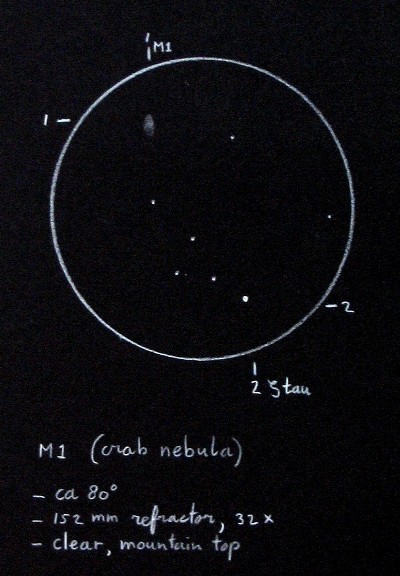 M1
1 -
- 2
2 ζ tau
M1 (crab nebula)
- ca 80°
- 152 mm refractor, 32 x
- clear, mountain top